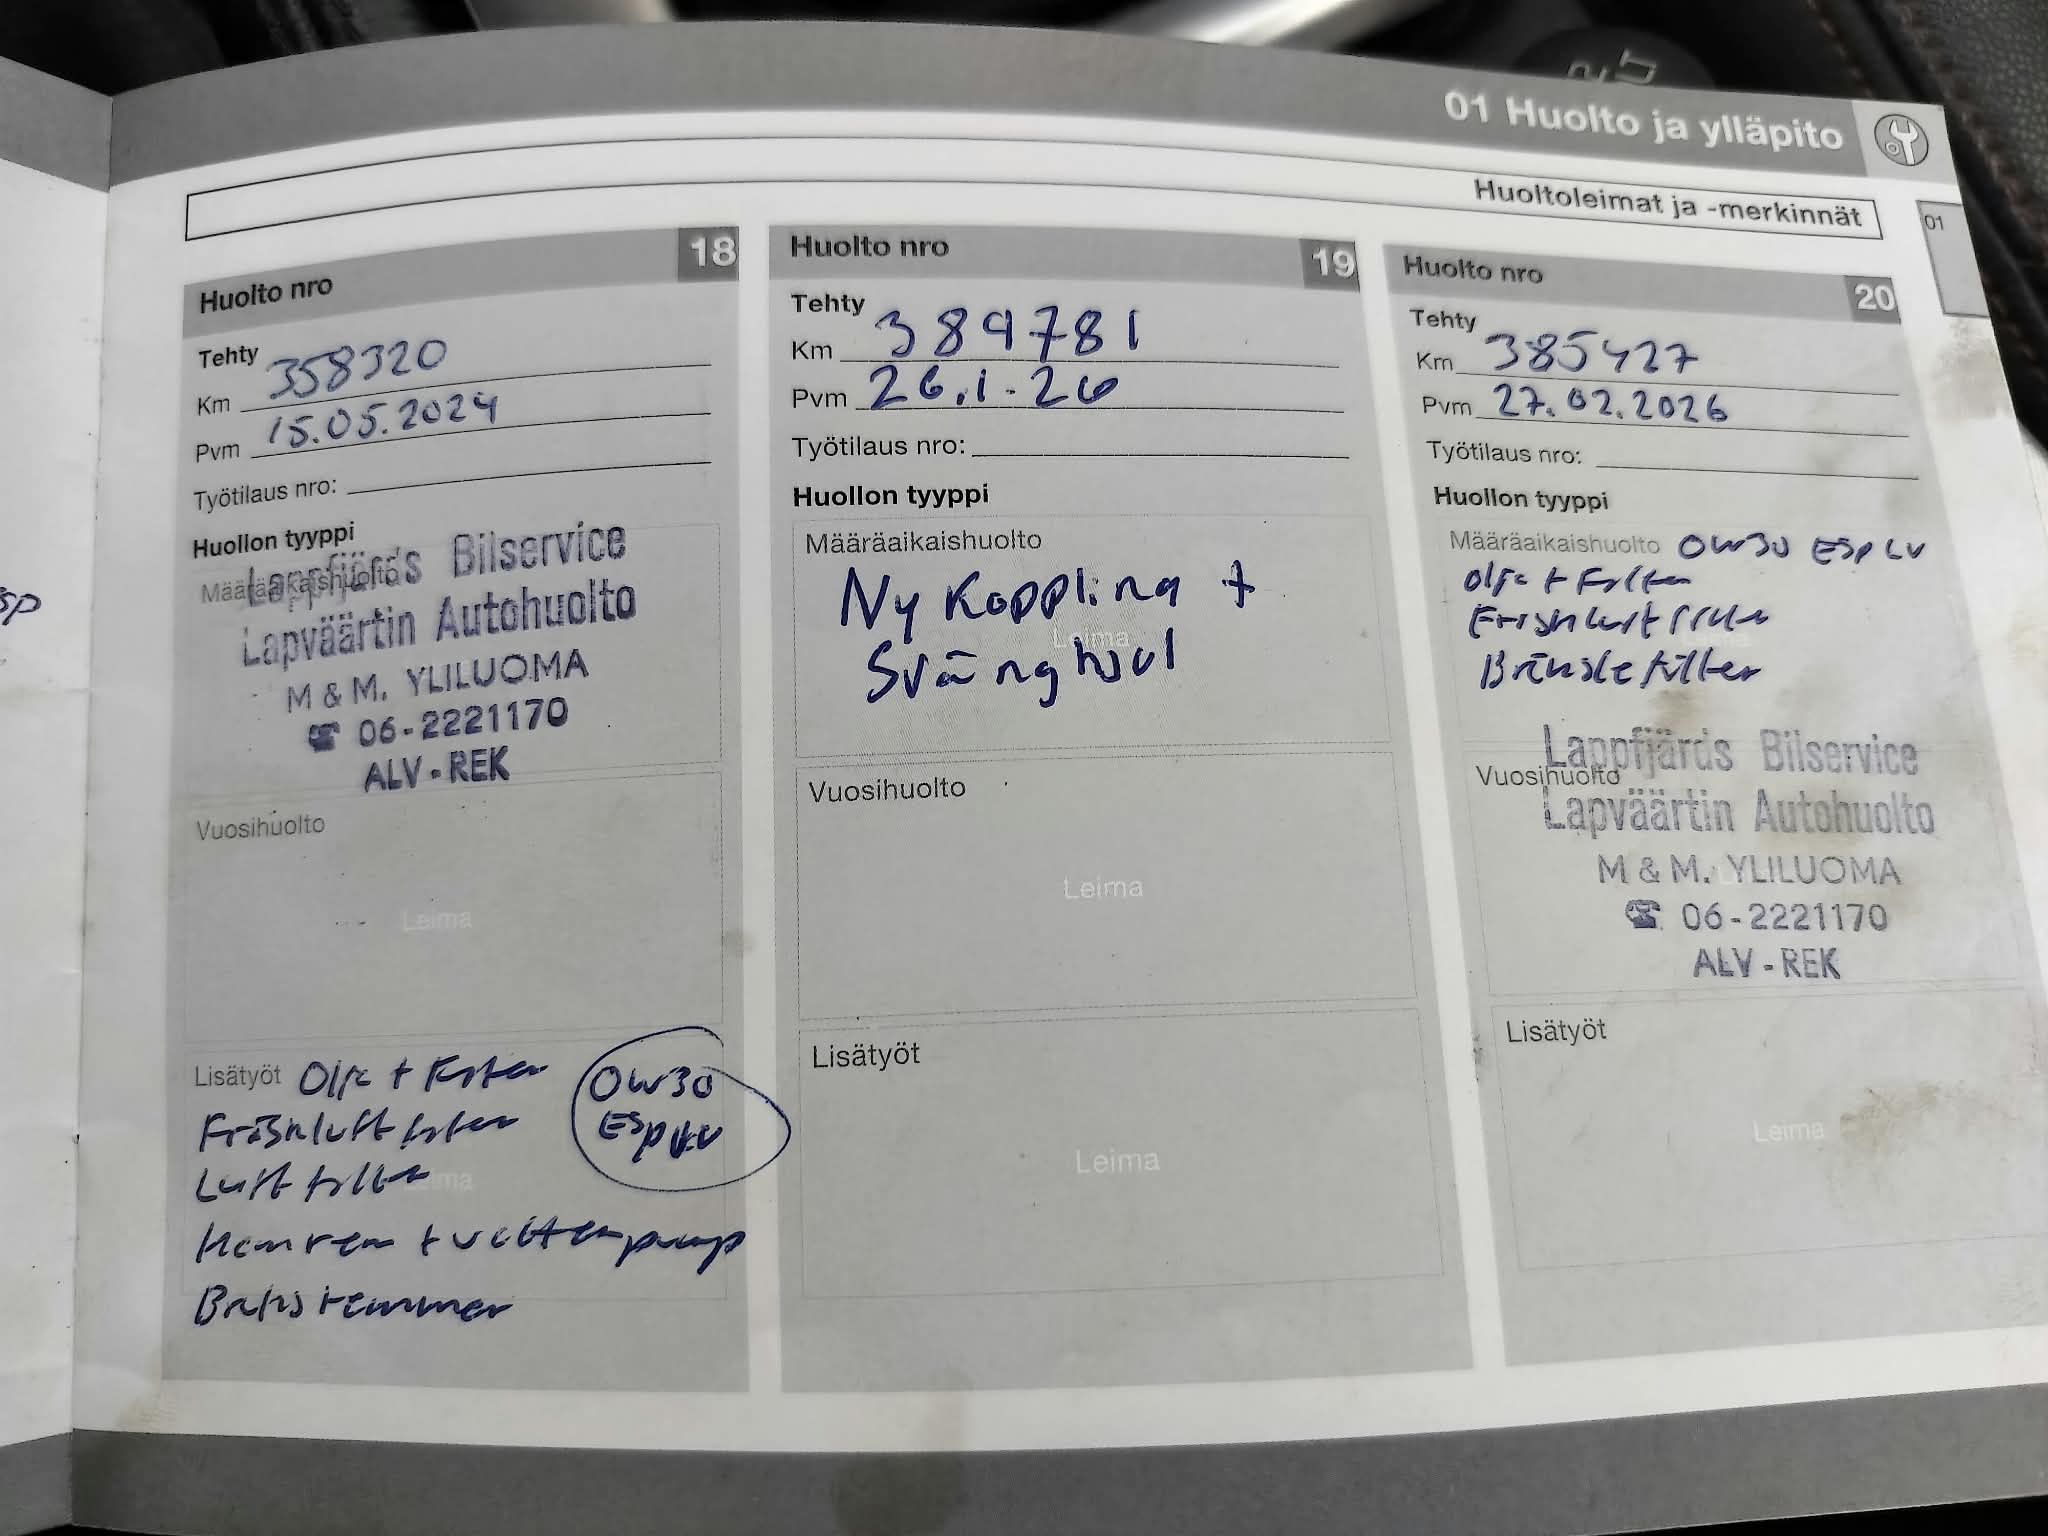 01 Huolto ja ylläpito
Huoltoleimat ja -merkinnät
01
Huolto nro 18
Tehty
Km 358320
Pvm 15.05.2024
Työtilaus nro:
Huollon tyyppi
Määräaikaishuolto
Lappfjärds Bilservice
Lapväärtin Autohuolto
M & M. YLILUOMA
☎ 06-2221170
ALV - REK
Vuosihuolto
Leima
Lisätyöt Olja + Filter
0W30
ESP LV
Friskluftfilter
Luftfilter
Kamrem + vattenpump
Leima
Huolto nro 19
Tehty
Km 384781
Pvm 26.1-26
Työtilaus nro:
Huollon tyyppi
Määräaikaishuolto
Ny Koppling +
Svänghjul
Leima
Vuosihuolto
Leima
Lisätyöt
Leima
Huolto nro 20
Tehty
Km 385427
Pvm 27.02.2026
Työtilaus nro:
Huollon tyyppi
Määräaikaishuolto 0W30 ESP LV
Olja + Filter
Friskluftfilter
Bränslefilter
Vuosihuolto
Lappfjärds Bilservice
Lapväärtin Autohuolto
M & M. YLILUOMA
☎ 06-2221170
ALV - REK
Lisätyöt
Leima